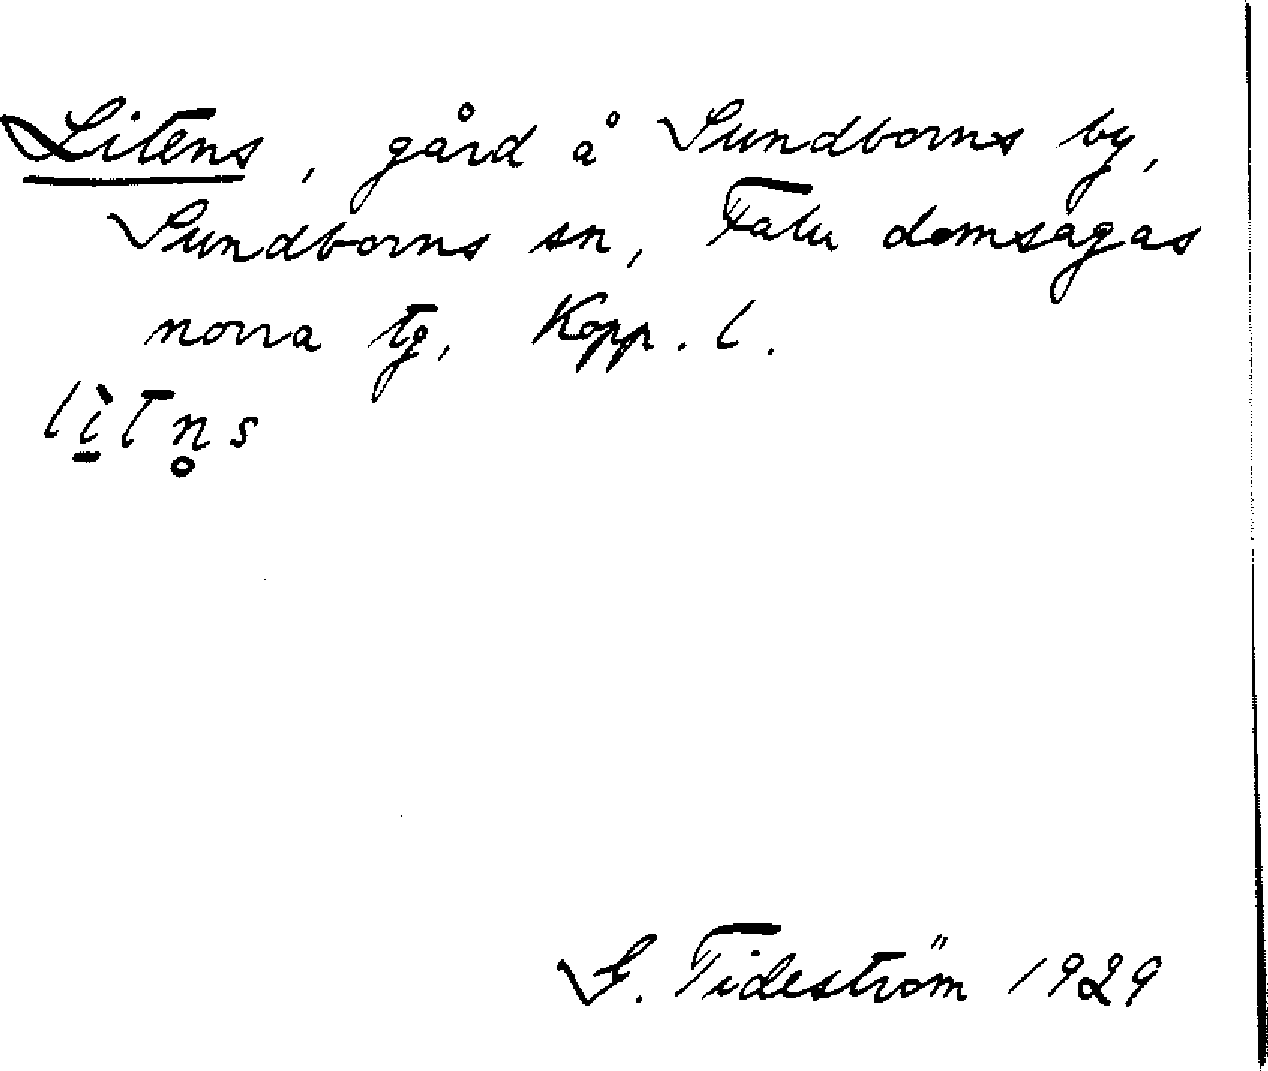 Litens, gård å Sundborns by,
Sundborns sn, Falu domsagas
norra tg, Kopp. l.
lì̠tn̥s
G. Tideström 1929